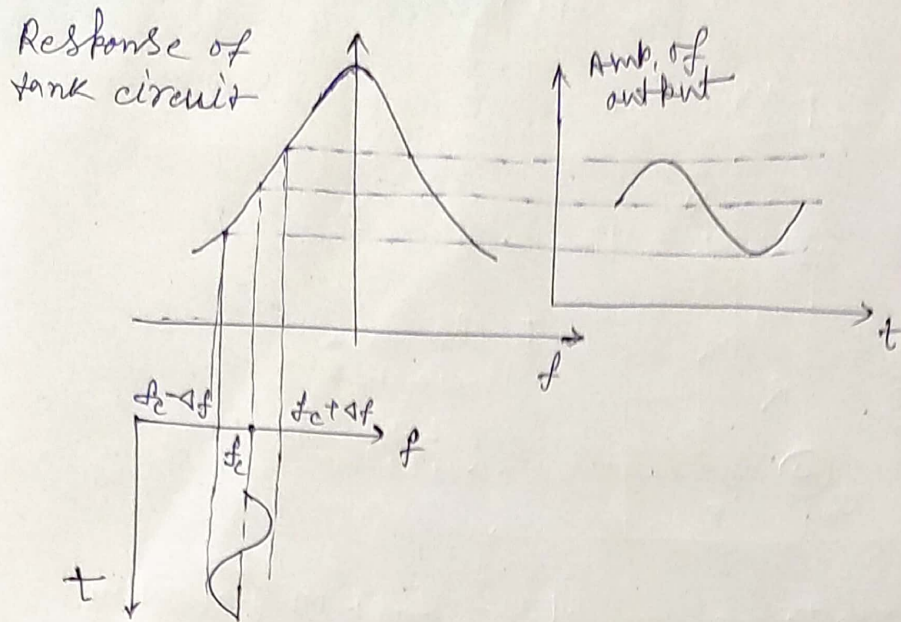 Response of
tank circuit
Amp. of
output
f
t
fc-Δf
fc+Δf
f
fc
t